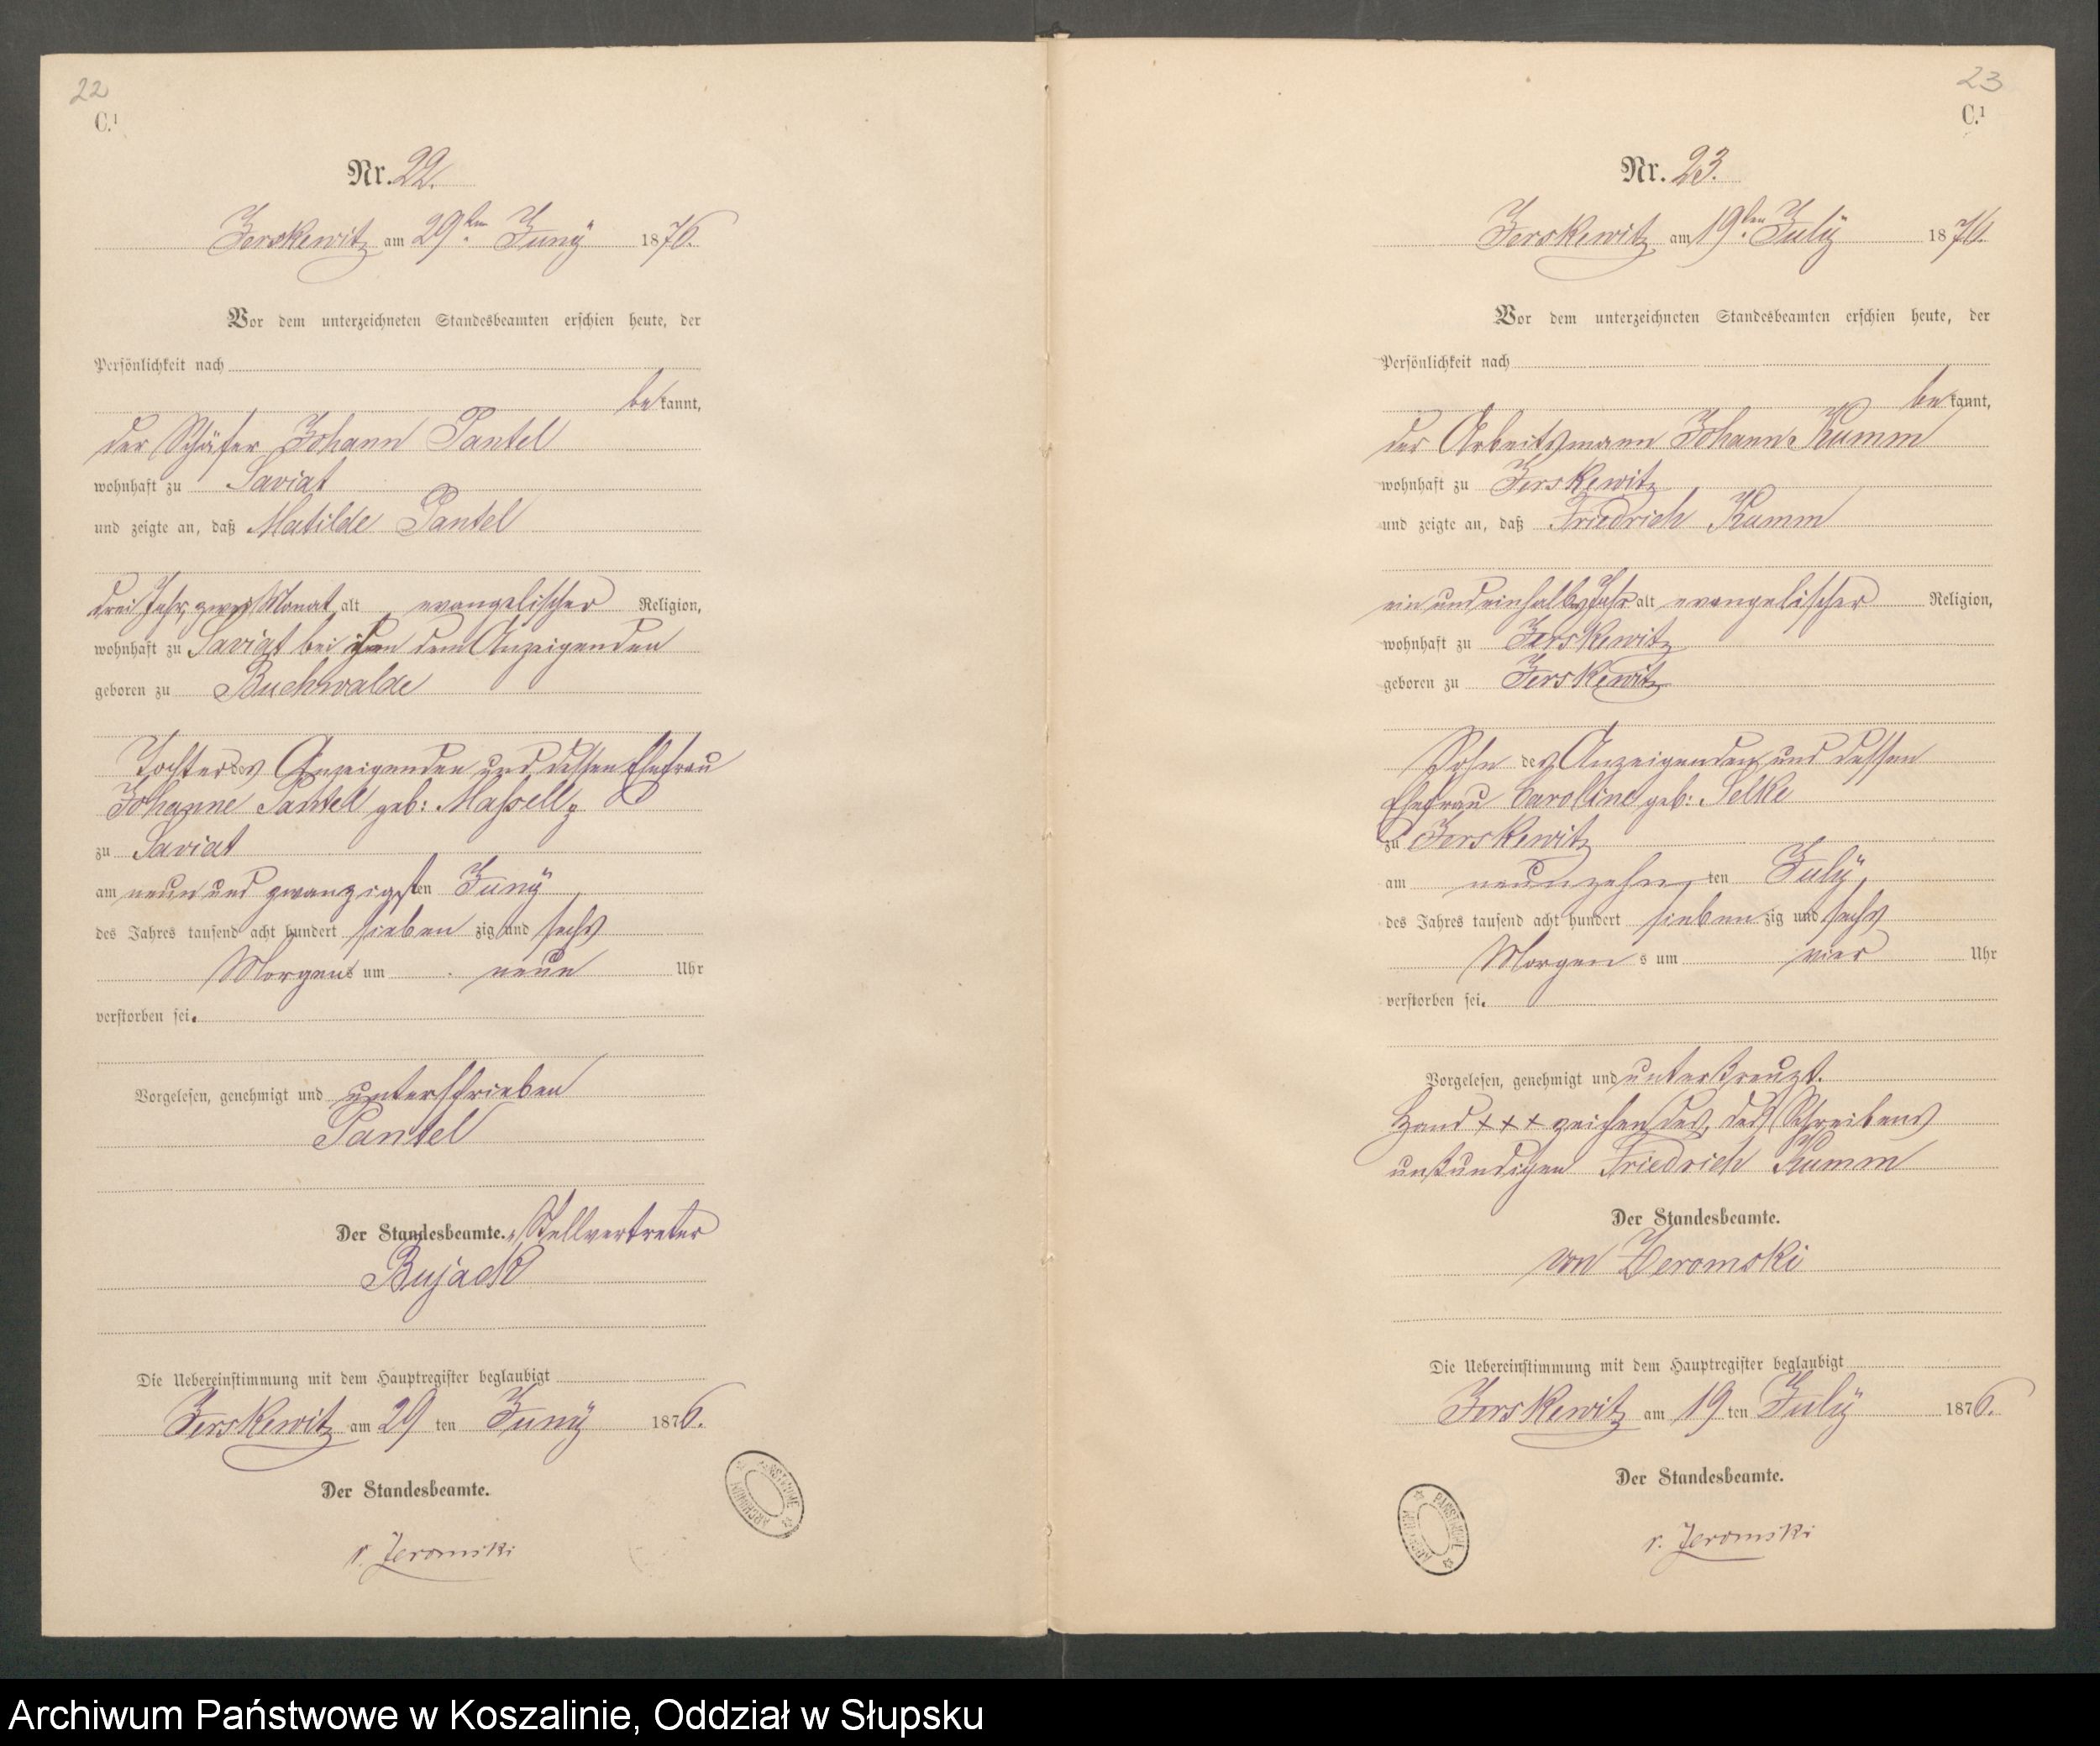 22
C.¹
Nr. 22.
Jerskewitz am 29ten Juny 1876.
Vor dem unterzeichneten Standesbeamten erschien heute, der
Persönlichkeit nach
bekannt,
der Schäfer Johann Pantel
wohnhaft zu Saviat
und zeigte an, daß Matilde Pantel
drei Jahr, zwei Monat alt evangelischer Religion,
wohnhaft zu Saviat bei dem Anzeigenden
geboren zu Buchwalde
Tochter des Anzeigenden und dessen Ehefrau
Johanne Pantel geb: Massell
zu Saviat
am neun und zwanzigsten Juny
des Jahres tausend acht hundert siebenzig und sechs
Morgens um neun Uhr
verstorben sei.
Vorgelesen, genehmigt und unterschrieben
Pantel
Der Standesbeamte. Stellvertreter
Bujack
Die Uebereinstimmung mit dem Hauptregister beglaubigt
Jerskewitz am 29 ten Juny 1876.
Der Standesbeamte.
v. Zeromski
ARCHIWUM PAŃSTWOWE
23
C.¹
Nr. 23.
Jerskewitz am 19ten July 1876.
Vor dem unterzeichneten Standesbeamten erschien heute, der
Persönlichkeit nach
bekannt,
der Arbeitsmann Johann Kumm
wohnhaft zu Jerskewitz
und zeigte an, daß Friedrich Kumm
ein und einhalbes Jahr alt evangelischer Religion,
wohnhaft zu Jerskewitz
geboren zu Jerskewitz
Sohn des Anzeigenden und dessen
Ehefrau Carolline geb: Selke
zu Jerskewitz
am neunzehnten July
des Jahres tausend acht hundert siebenzig und sechs
Morgens um vier Uhr
verstorben sei.
Vorgelesen, genehmigt und unterkreuzt.
Hand +++ zeichen des, des Schreibens
unkundigen Friedrich Kumm
Der Standesbeamte.
von Zeromski
Die Uebereinstimmung mit dem Hauptregister beglaubigt
Jerskewitz am 19 ten July 1876.
Der Standesbeamte.
v. Zeromski
ARCHIWUM PAŃSTWOWE
Archiwum Państwowe w Koszalinie, Oddział w Słupsku